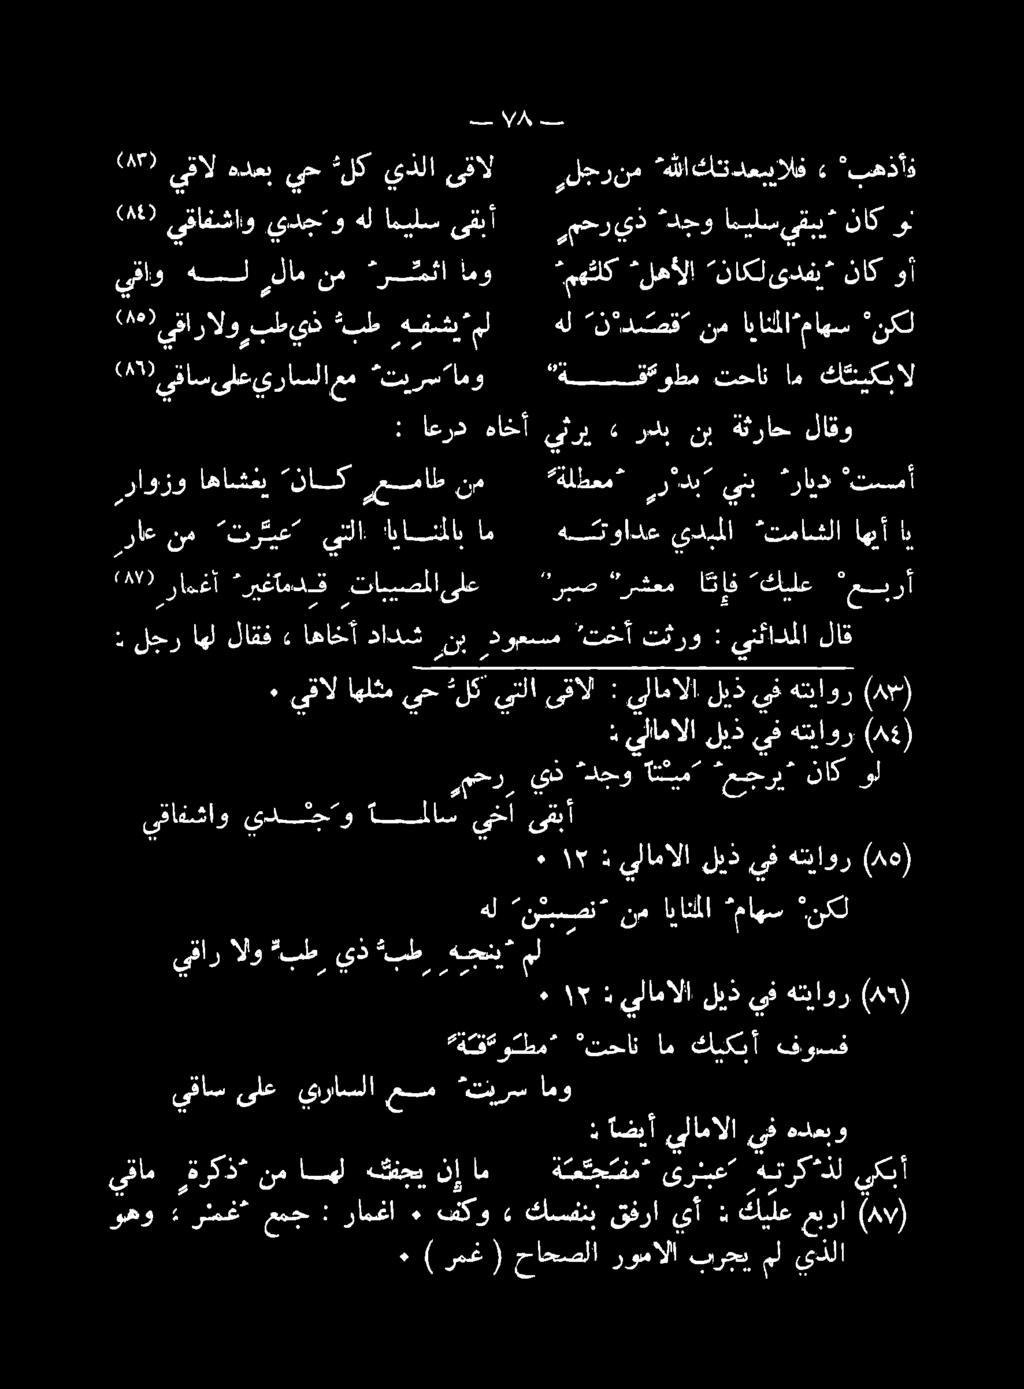 — ٧٨ —
فأذهبْ ، فلايبعدنك اللهُ من رجلٍ لاقى الذي كلُّ حي بعده لاقي (٨٣)
لو كان يُبقي سليما وجدُ ذي رحمٍ أبقى سليما له وَجدي واشفاقي (٨٤)
أو كان يُفدى لكانَ الأهلُ كلّهمُ وما اثمّرُ من مالٍ له واقي
لكنْ سهامُ المنايا من قصَدْنَ له لم يُشفِهِ طبُّ ذي طبٍ ولاراقي (٨٥)
لابكينّك ما ناحت مطوّقةٌ وما سريتُ مع الساري على ساقي (٨٦)
وقال حارثة بن بدر ، يرثي أخاه درعا :
أمستْ ديارُ بني بَدْرٍ مُعطلةً من طامعٍ كانَ يغشاها وزوارِ
يا أيها الشامتُ المبدي عداوتَه ما بالمنايا التي عَيّرتَ من عارِ
أربعْ عليكَ فإنّا معشرٌ صبرٌ على المصيباتِ قدماً غيرُ أغمارِ (٨٧)
قال المدائني : ورثت أختُ مسعودِ بنِ شداد أخاها ، فقال لها رجل :
(٨٣) روايته في ذيل الامالي : لاقى التي كلُّ حي مثلها لاقي ٠
(٨٤) روايته في ذيل الامالي :
لو كان يُرجِعُ مَيْتاً وجدُ ذي رحمٍ
أبقى أخي سالماً وَجْدي واشفاقي
(٨٥) روايته في ذيل الامالي : ١٢ ٠
لكنْ سهامُ المنايا من نُصِبْنَ له
لم يُنجِهِ طبُّ ذي طبٍّ ولا راقي
(٨٦) روايته في ذيل الامالي : ١٢ ٠
فسوف أبكيك ما ناحتْ مُطوّقَةٌ
وما سريتُ مع الساري على ساقي
وبعده في الامالي أيضاً :
أبكي لذكرتِهِ عَبْرى مُفَجّعَة ما إن يجفُّ لها من ذُكرةٍ ماقي
(٨٧) اربع عليك : أي ارفق بنفسك ، وكف ٠ اغمار : جمع غُمْر ، وهو
الذي لم يجرب الامور الصحاح ( غمر ) ٠